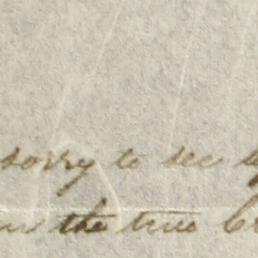 sorry to see
the true